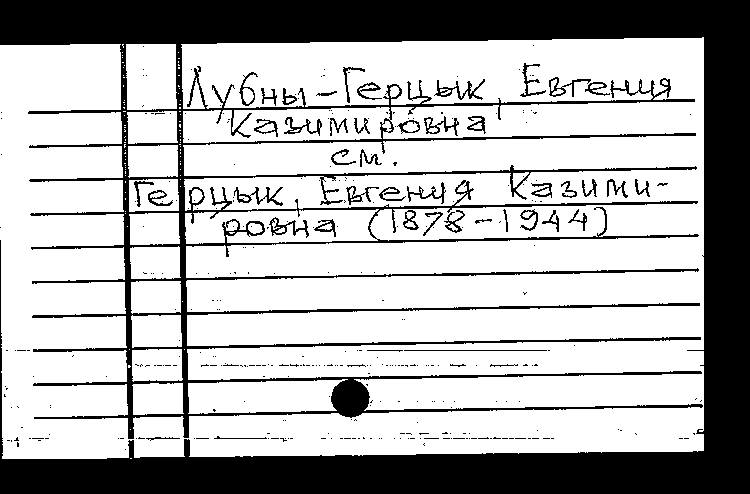 Лубны-Герцык, Евгения
Казимировна
см.
Герцык, Евгения Казими-
ровна (1878-1944)